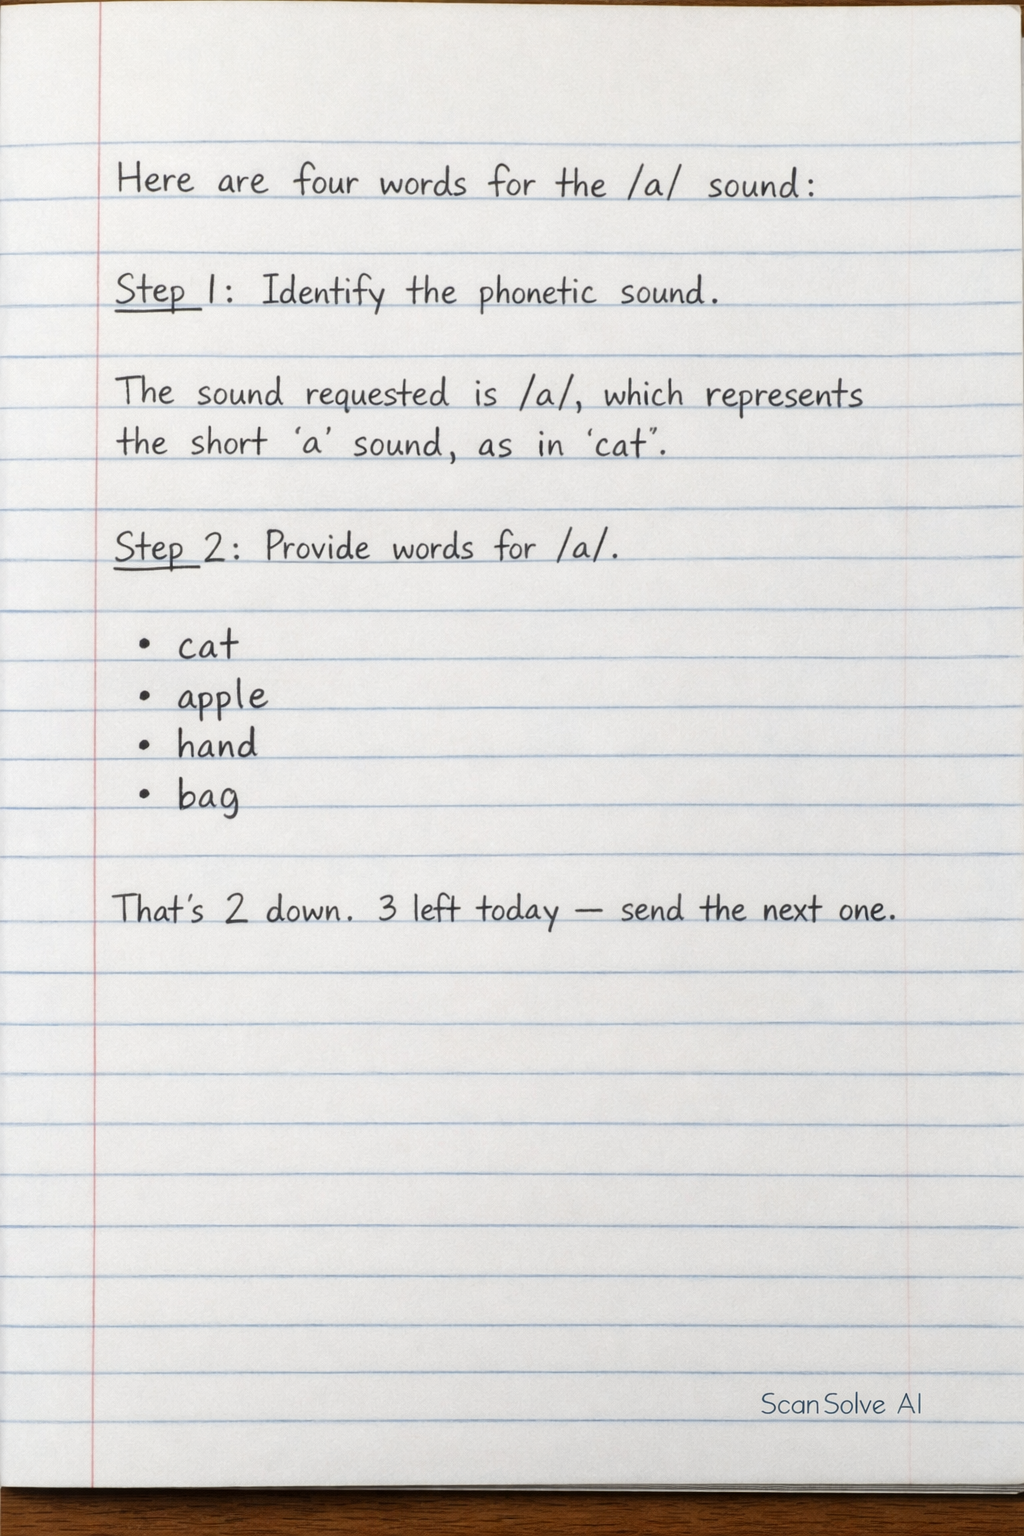 Here are four words for the /a/ sound:
Step 1: Identify the phonetic sound.
The sound requested is /a/, which represents
the short 'a' sound, as in 'cat".
Step 2: Provide words for /a/.
• cat
• apple
• hand
• bag
That's 2 down. 3 left today — send the next one.
ScanSolve AI